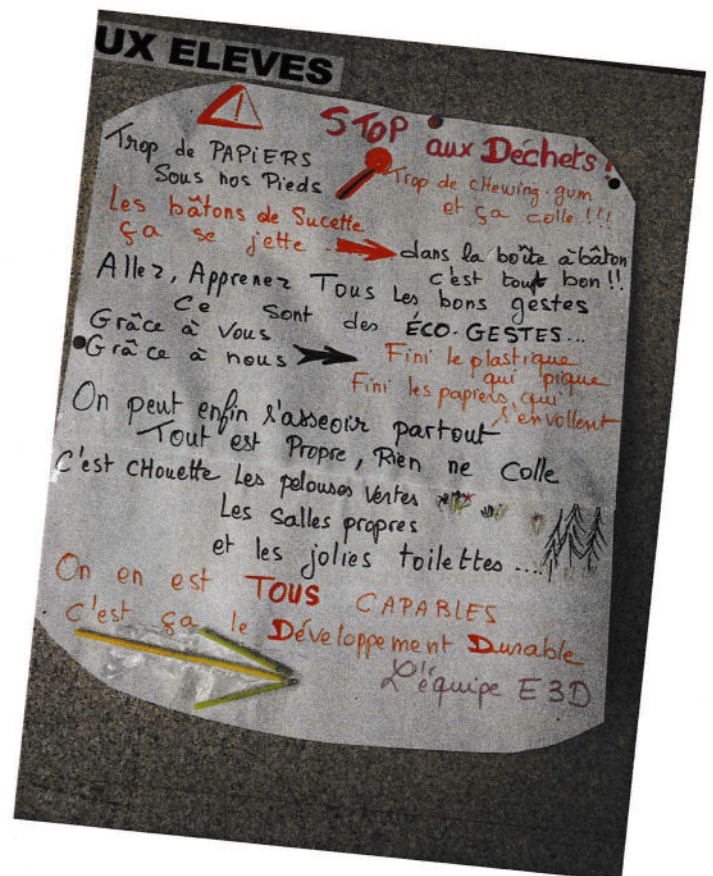 UX ELEVES
STOP aux Déchets !
Trop de PAPiERS
Sous nos Pieds
Trop de cHewing-gum
et ça colle !!!
Les bâtons de Sucette
ça se jette ...
dans la boîte à bâton
c'est tout bon !!
Allez, Apprenez Tous Les bons gestes
Ce sont des ÉCO-GESTES...
Grâce à Vous
Grâce à nous
Fini le plastique
qui pique
Fini les papiers qui
s'envollent
On peut enfin s'asseoir partout
Tout est Propre, Rien ne Colle
C'est cHouette Les pelouses Vertes
Les Salles propres
et les jolies toilettes ....
On en est TOUS CAPABLES
C'est ça le Développement Durable
L'équipe E3D